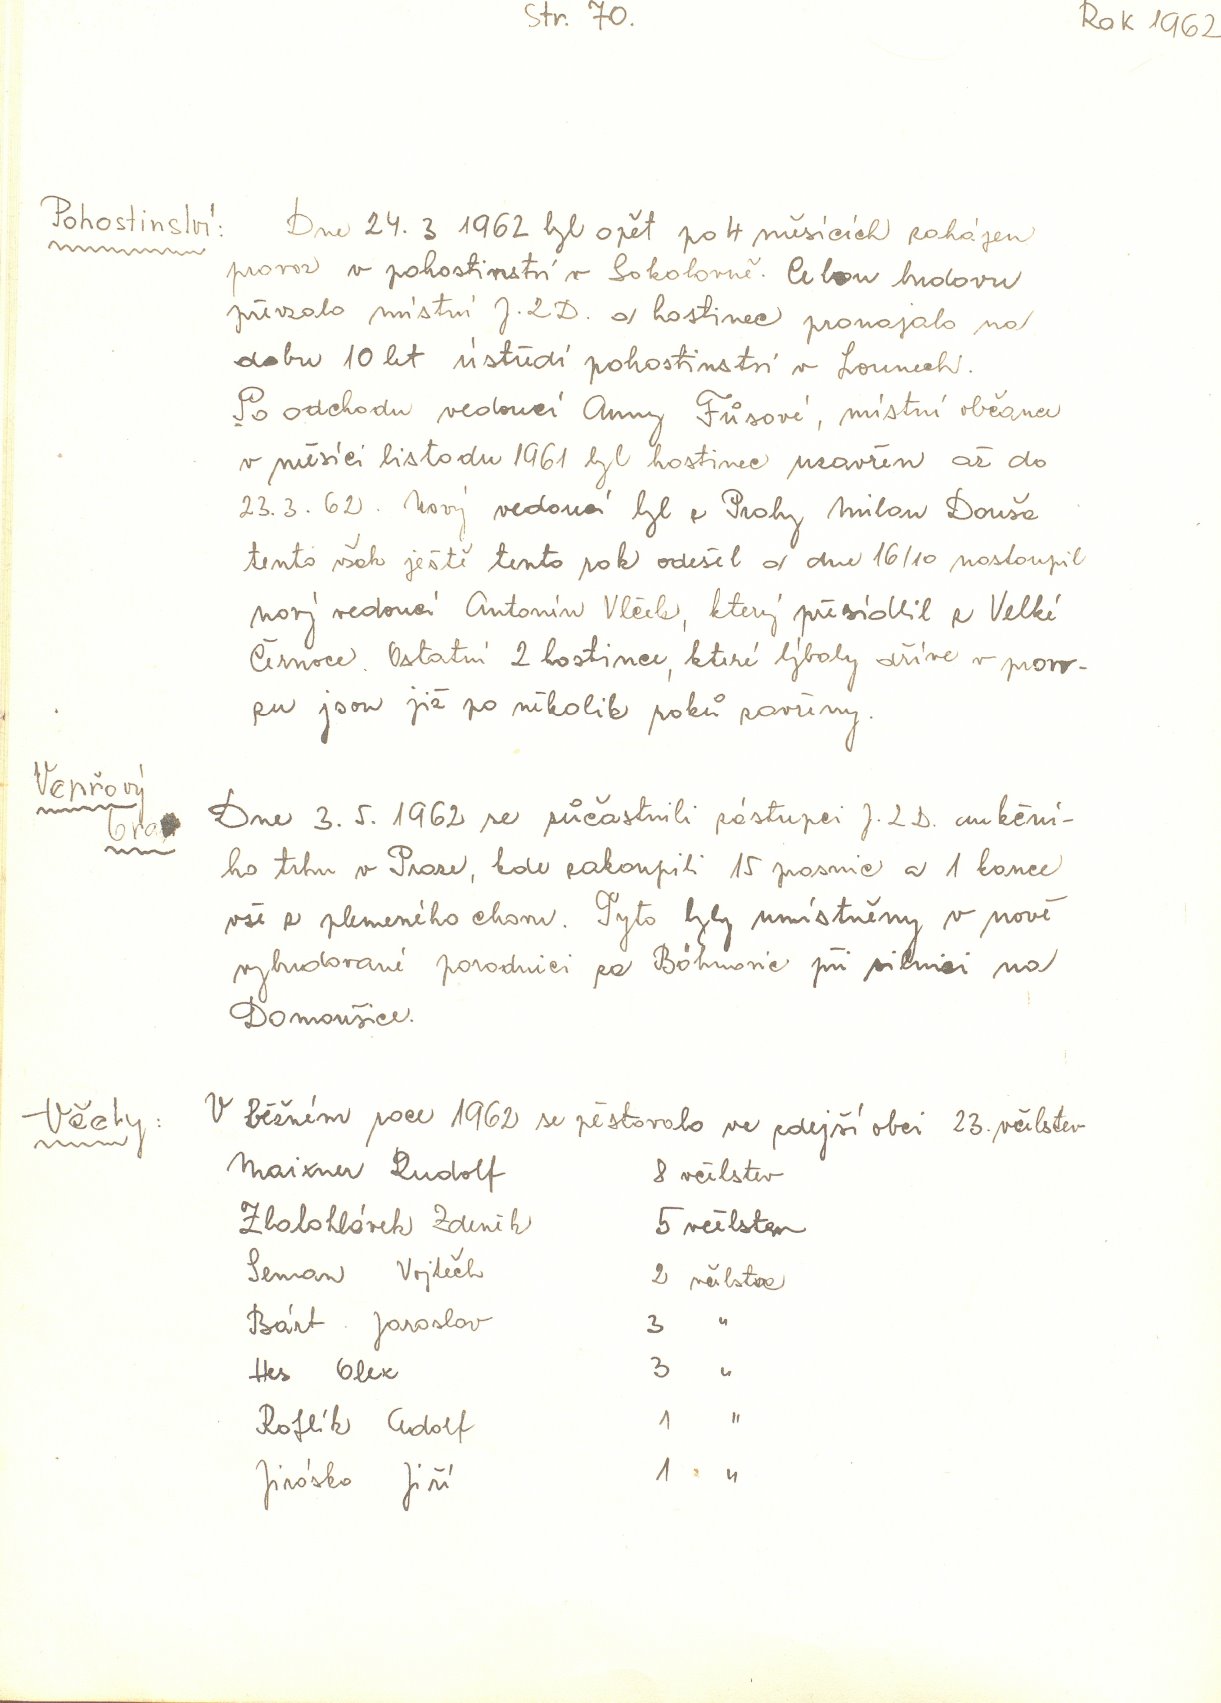 Str. 70.
Rok 1962
Pohostinství: Dne 24. 3 1962 byl opět po 4 měsících zahájen
provoz v pohostinství v Sokolovně. Celou budovu
převzalo místní J.Z.D. a hostinec pronajalo na
dobu 10 let ústředí pohostinství v Lounech.
Po odchodu vedoucí Anny Fůsové, místní občance
v měsíci listodu 1961 byl hostinec uzavřen až do
23.3.62. Nový vedoucí byl z Prahy Milan Douša
tento však ještě tento rok odešel a dne 16/10 nastoupil
nový vedoucí Antonín Vlček, který přesídlil z Velké
Černoce. Ostatní 2 hostince, které bývaly dříve v provo-
zu jsou již po několik roků zavřeny.
Vepřový
Dne 3. 5. 1962 se zůčastnili zástupci J.Z.D. aukční-
ho trhu v Praze, kde zakoupili 15 prasnic a 1 kance
vše z plemeného chovu. Tyto byly umístněny v nově
vybudované porodnici za Böhmovic při silnici na
Domoušice.
Včely: V běžném roce 1962 se pěstovalo ve zdejší obci 23. včelstev
Maixner Rudolf 8 včelstev
Zlatohlávek Zdeněk 5 včelstev
Seman Vojtěch 2 včelstva
Bárt Jaroslav 3 "
Hes Olex 3 "
Roflík Adolf 1 "
Jirásko Jiří 1 "